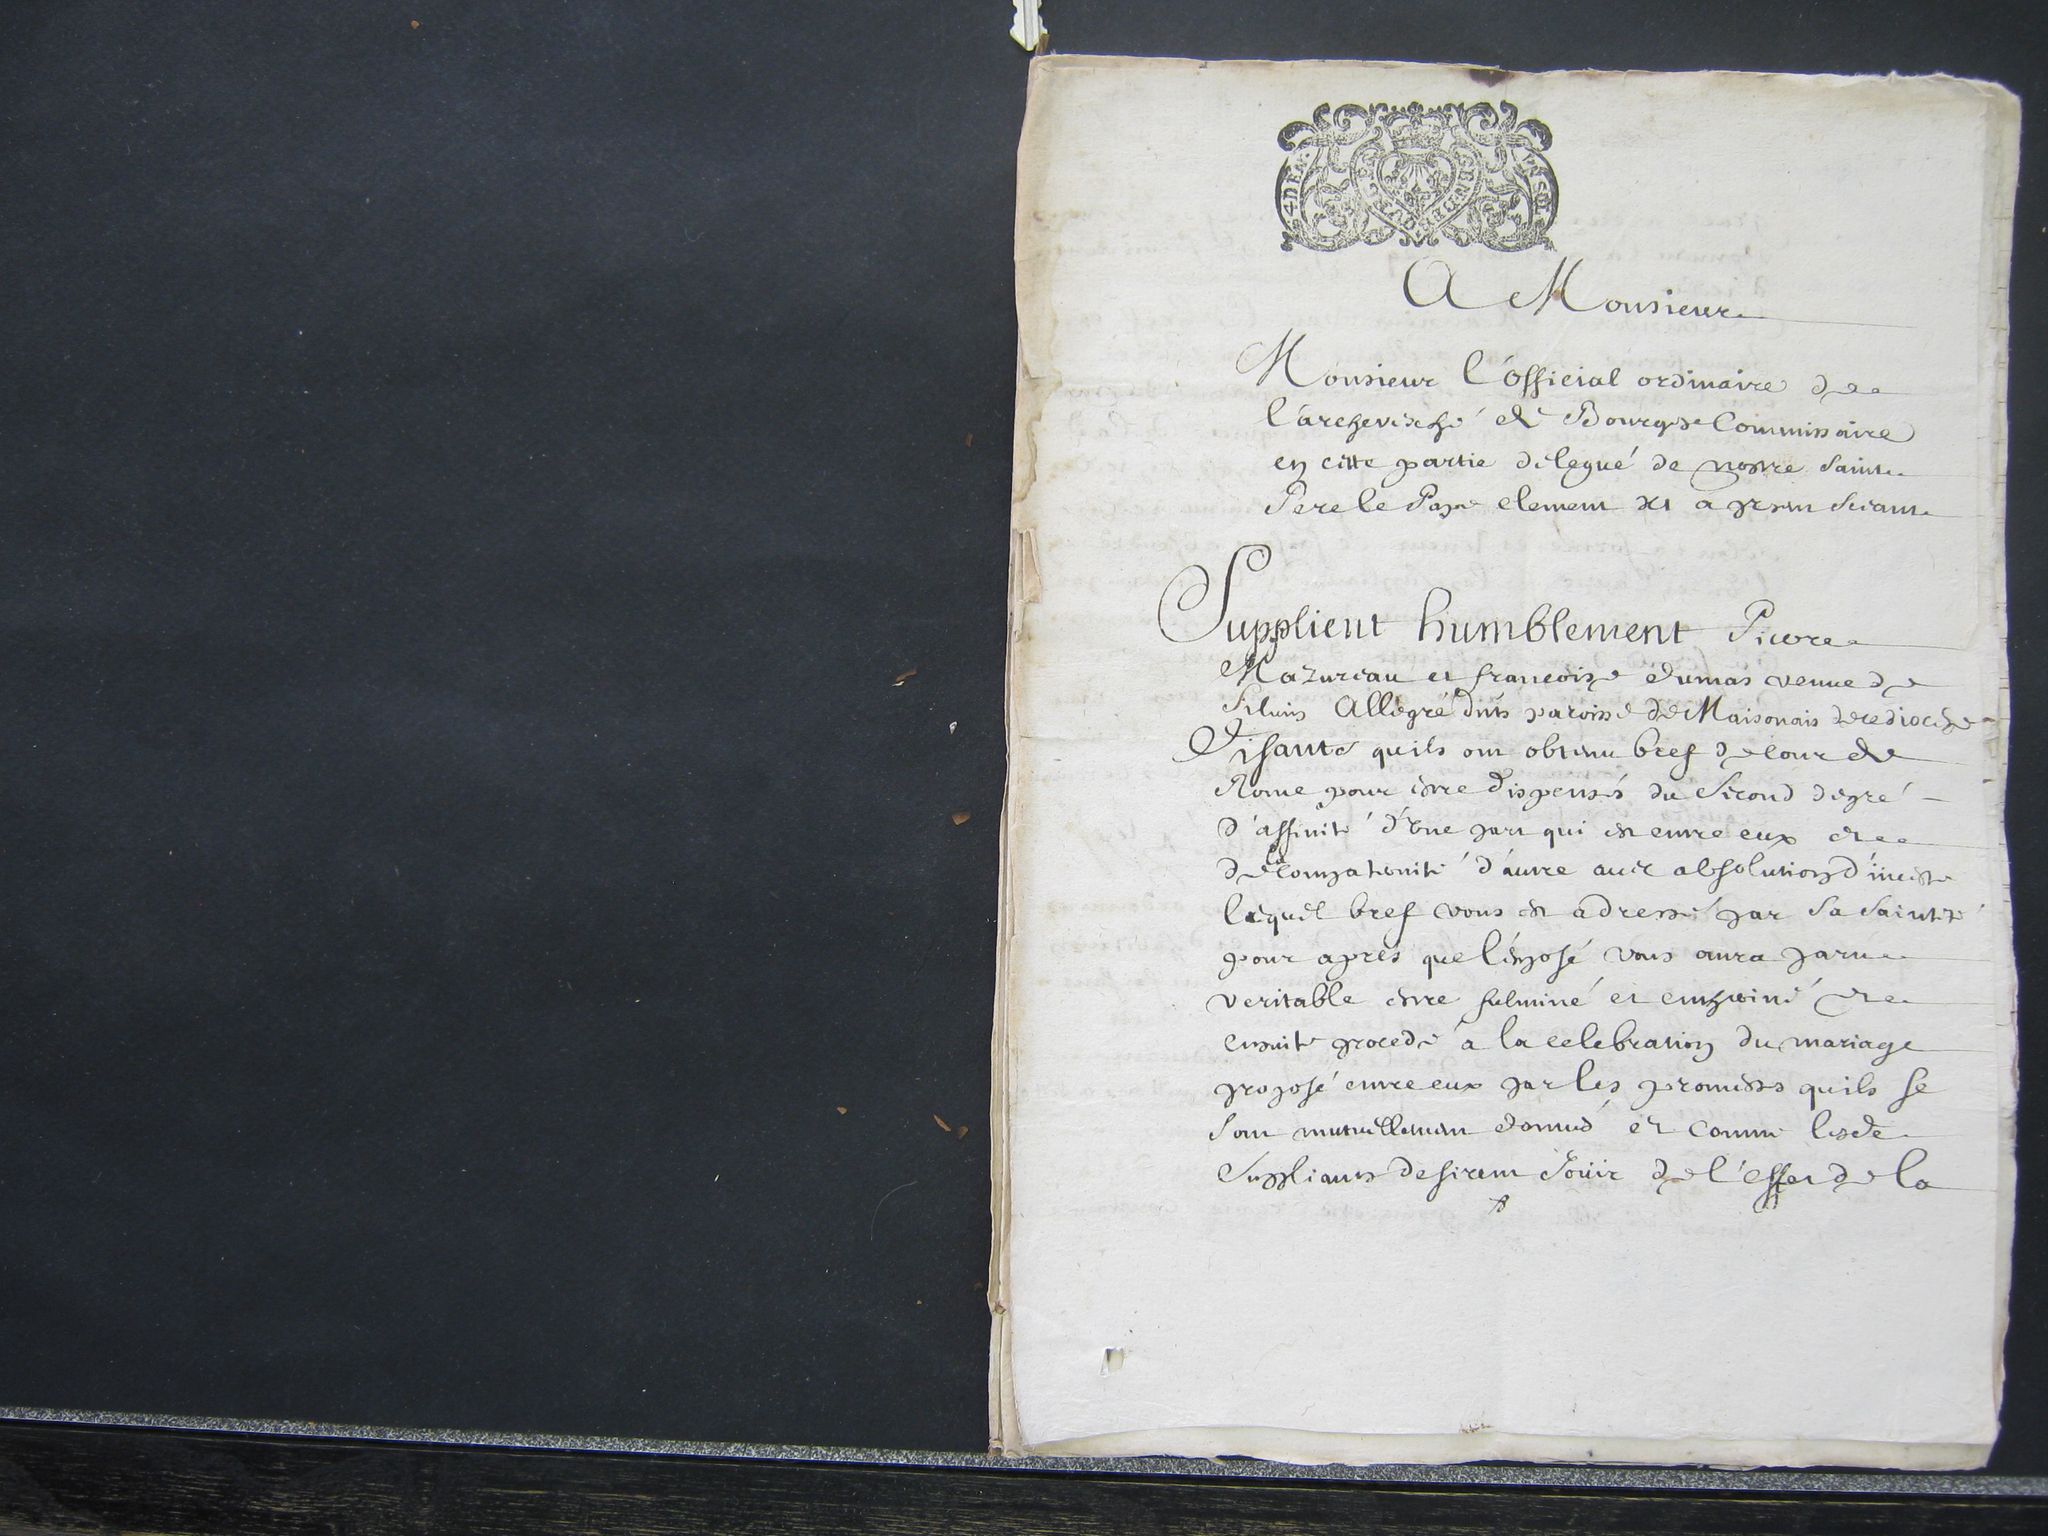 A Monsieur
Monsieur l'official ordinaire de
l'archevesché de Bourges Commissaire
en cette partie delegué de nostre Saint
Pere le Pape clement XI a present seant
Supplient humblement Pierre
Mazureau et francoise dumas veuve de
Silvin Allegré dits paroisse de Maisonais de ce diocese
Disants quils ont obtenu bref de cour de
Rome pour estre dispensés du second degré
d'affinité d'une part qui est entre eux et
de la compaternité d'autre avec absolution d'inceste
lequel bref vous est adressé par sa sainteté
pour apres que l'exposé vous aura paru
veritable estre fulminé et enteriné et
ensuite procedé à la celebration du mariage
proposé entre eux par les promesses quils se
sont mutuellement donnés et comme les
supplians desirent Joüir de l'effet de la